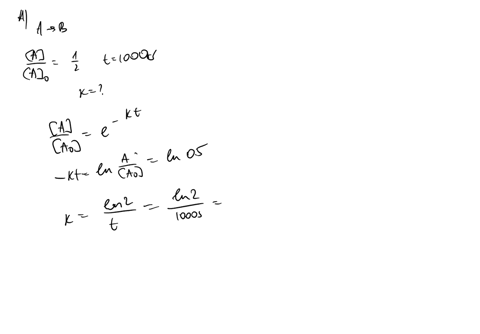 A) A → B
[A]/[A]₀ = 1/2 t = 1000s
K = ?
[A]/[A₀] = e^{-Kt}
-Kt = ln A/[A₀] = ln 05
K = ln2/t = ln2/1000s =